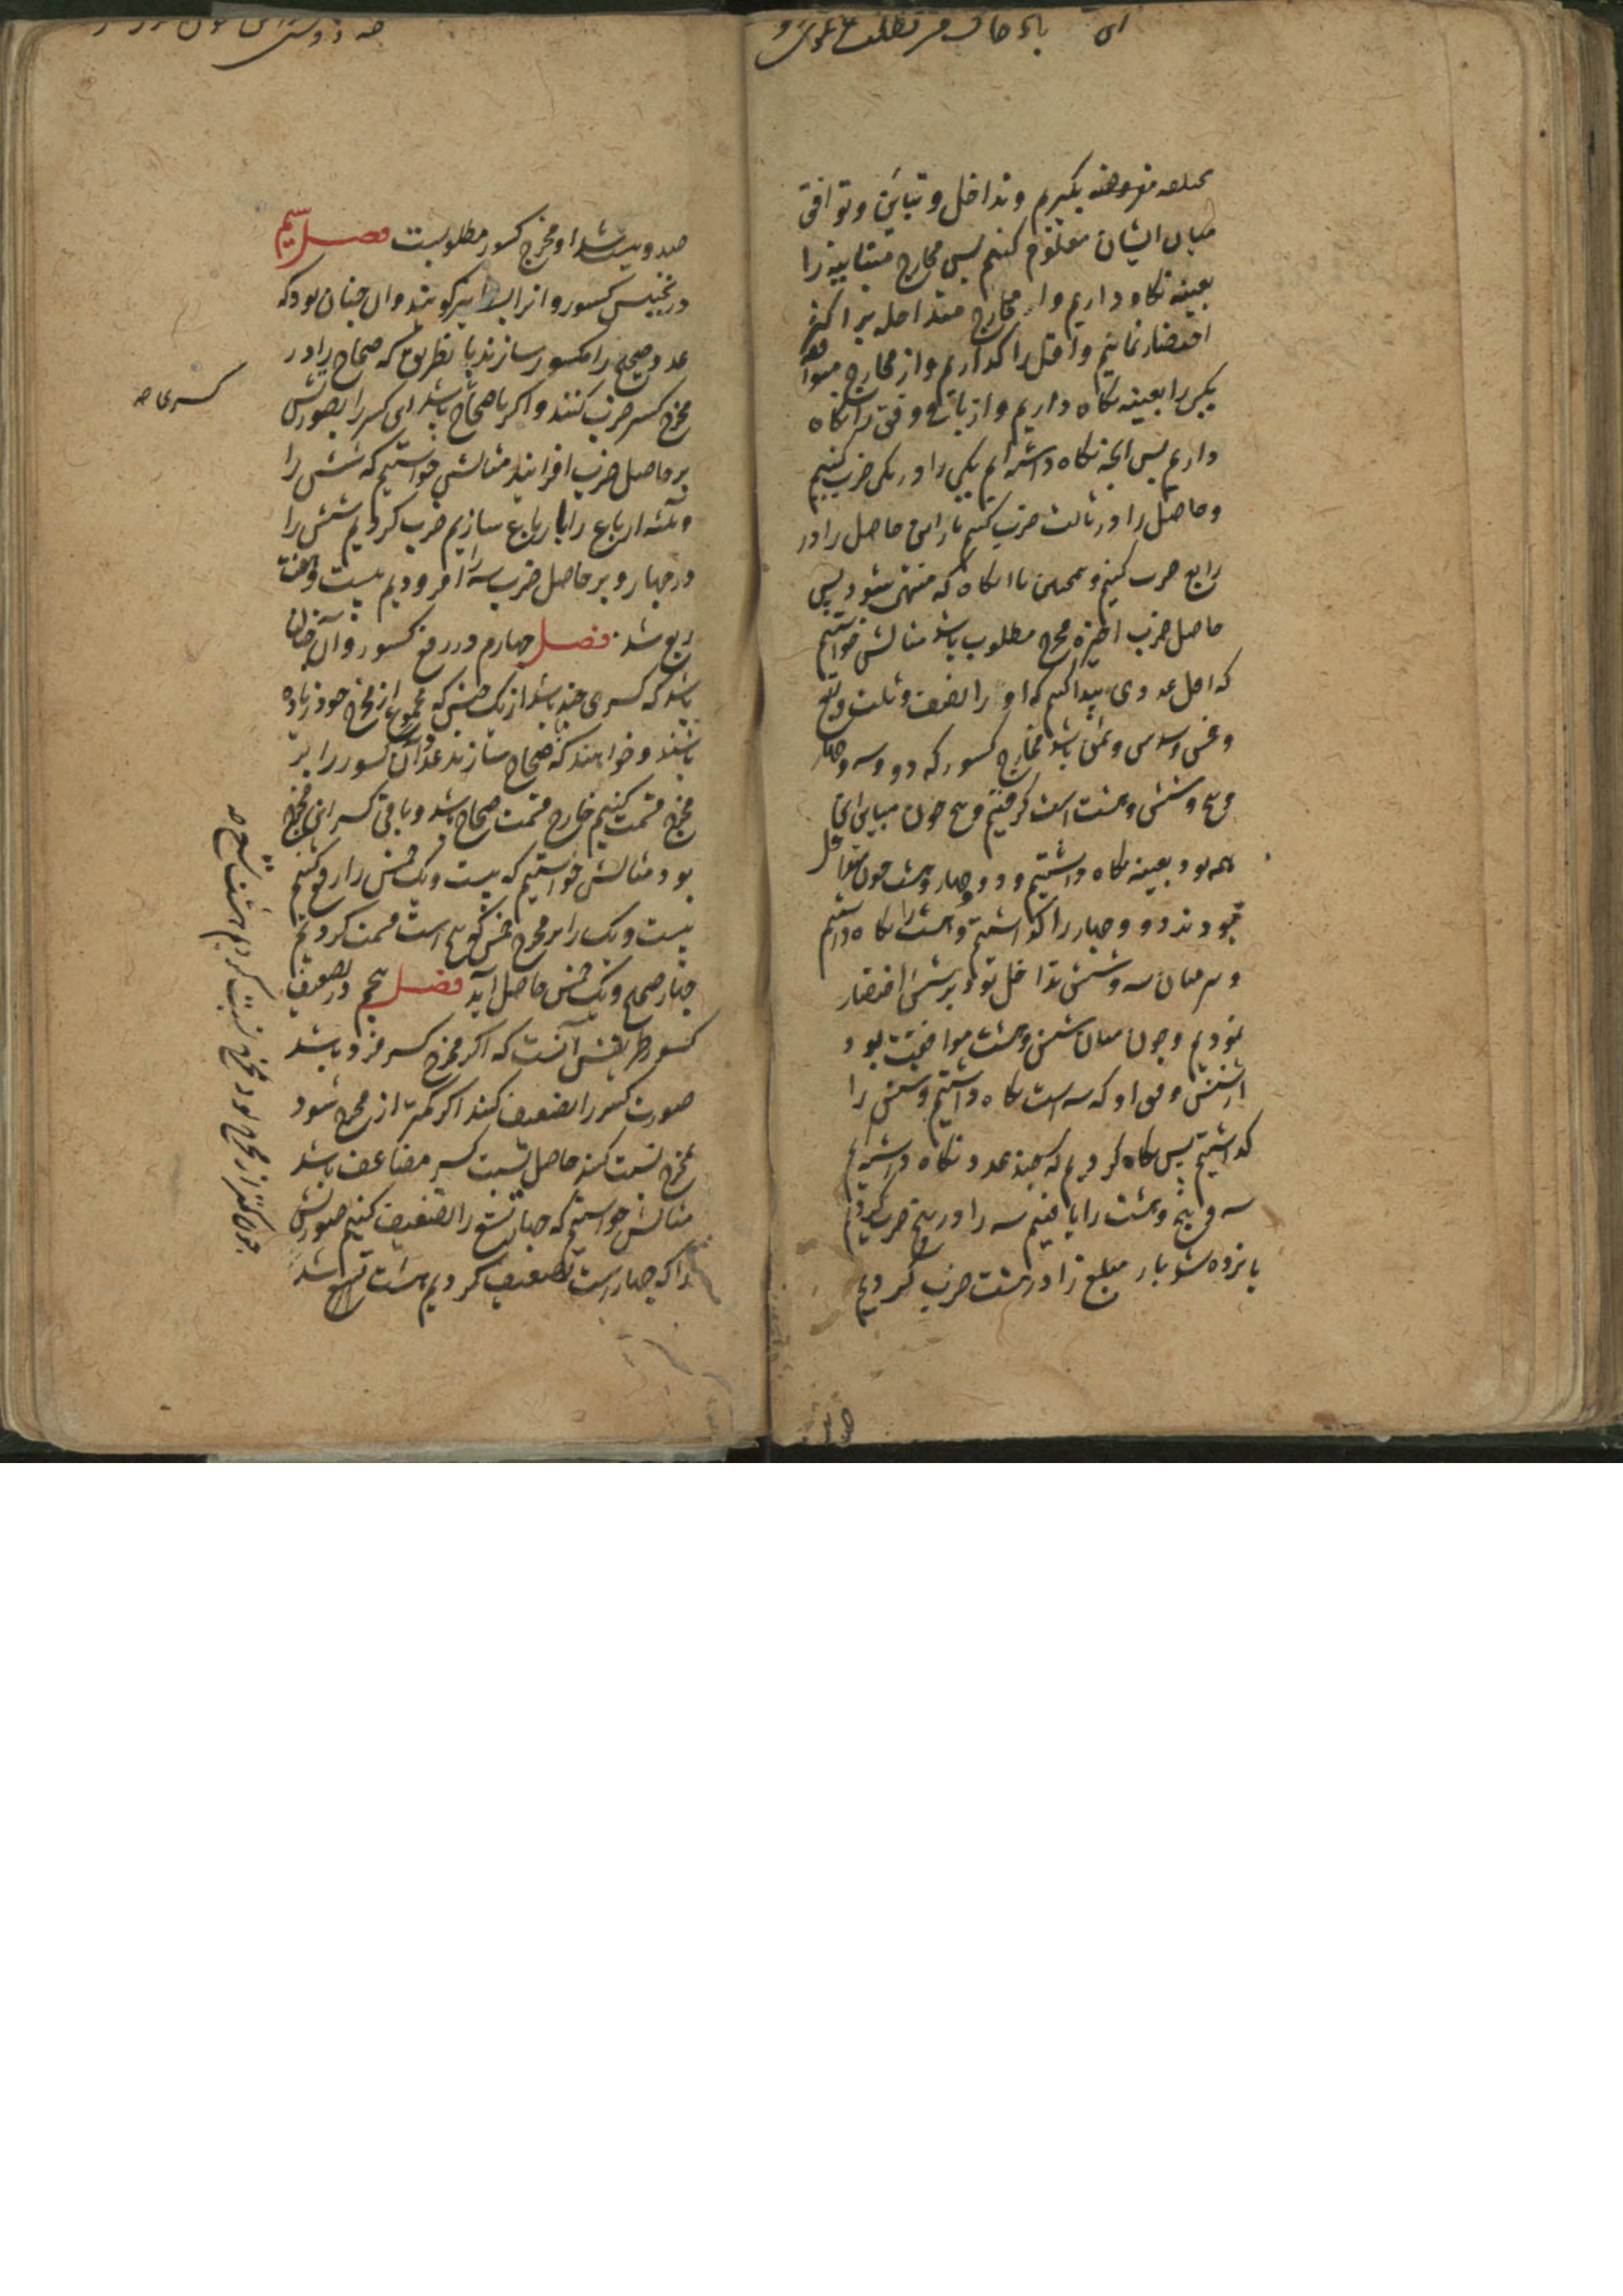 مختلفه مفروضه بگیریم و تداخل و تباین و توافق
میان ایشان معلوم کنیم پس مخارج متباینه را
بعینه نگاه داریم و از مخارج متداخله بر اکثر
اقتصار نماییم و اقل را گذاریم و از مخارج متوافقه
یکی را بعینه نگاه داریم و از باقی وفق را نگاه
داریم پس آنچه نگاه داشته ایم یکی را در یکی ضرب کنیم
و حاصل را در ثالث ضرب کنیم باز این حاصل را در
رابع ضرب کنیم و همچنین تا آنگاه که منتهی شود پس
حاصل ضرب اخیره مخرج مطلوب باشد مثالش خواستیم
که اصل عددی پیدا کنیم که او را نصف و ثلث و ربع
و خمس و سدس و ثمن باشد مخارج کسور که دو و سه و چهار
و پنج و شش و هشت است گرفتیم و پنج چون مباین
همه بود بعینه نگاه داشتیم و دو و چهار و هشت چون متداخل
بودند دو و چهار را گذاشتیم و هشت را نگاه داشتیم
و میان سه و شش تداخل بود بر شش اقتصار
نمودیم و چون میان شش و هشت موافقت بود
از شش وفق او که سه است نگاه داشتیم و شش را
گذاشتیم پس نگاه کردیم که چند عدد نگاه داشته ایم
سه و پنج و هشت را یافتیم سه را در پنج ضرب کردیم
پانزده شد باز مبلغ را در هشت ضرب کردیم
صد و بیست شد و او مخرج کسور مطلوبست فصل سیم
در تجنیس کسور و آنرا بسط نیز گویند و آن چنان بود که
عدد صحیح را کسور سازند باین طریق که صحاح را در
مخرج کسر ضرب کنند و اگر با صحاح باشد ای کسر را بصورتش
بر حاصل ضرب افزایند مثالش خواستیم که شش را
و ثلثه ارباع را ارباع سازیم ضرب کردیم شش را
در چهار و بر حاصل ضرب سه را افزودیم بیست و هفت
ربع شد فصل چهارم در رفع کسور و آن چنان
باشد که کسری چند باشد از یک جنس که مجموع از مخرج خود زیاده
باشند و خواهند که صحاح سازند عدد آن کسور را بر
مخرج قسمت کنیم خارج قسمت صحاح باشد و باقی کسر از آن مخرج
بود مثالش خواستیم که بیست و یک خمس را رفع کنیم
بیست و یک را بر مخرج خمس که پنج است قسمت کردیم
چهار صحیح و یک خمس حاصل آید فصل پنجم در تضعیف
کسور طریقش آنست که اگر مخرج کسر فرد باشد
صورت کسر را تضعیف کنند اگر کمتر از مخرج شود
بمخرج نسبت کنند حاصل نسبت کسر مضاعف باشد
مثالش خواستیم که چهار تسع را تضعیف کنیم صورتش
را که چهار است تضعیف کردیم هشت تسع شد
کسری صه
چون کمتر از مخرج بود بمخرج نسبت کردیم هشت تسع صه